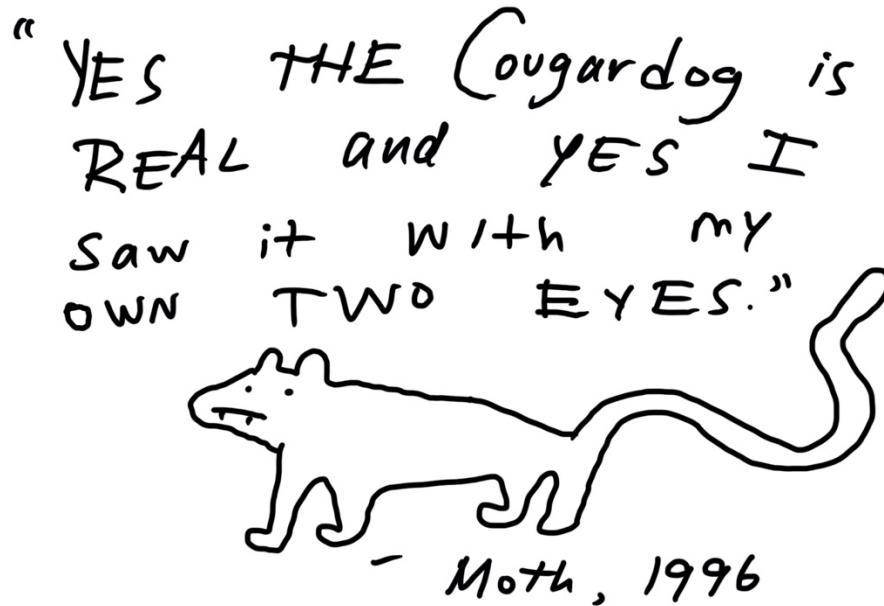 “YES THE Cougardog is
REAL and YES I
saw it with my
OWN TWO EYES.”
- Moth, 1996